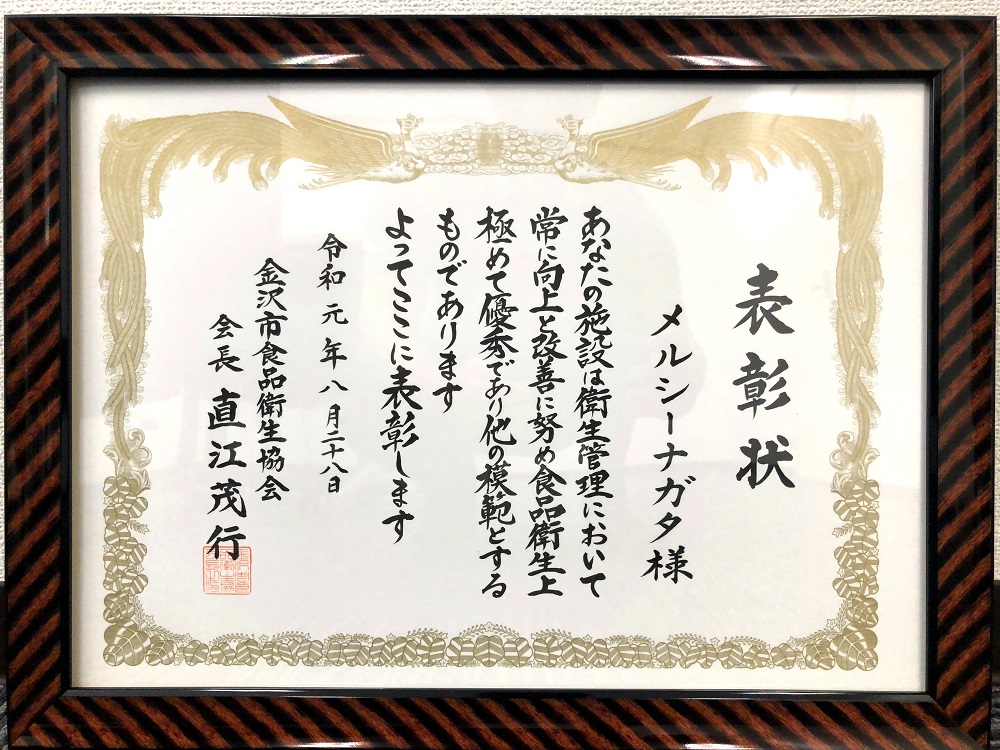 表彰状
メルシーナガタ様
あなたの施設は衛生管理において
常に向上と改善に努め食品衛生上
極めて優秀であり他の模範とする
ものであります
よってここに表彰します
令和元年八月二十八日
金沢市食品衛生協会
会長 直江茂行